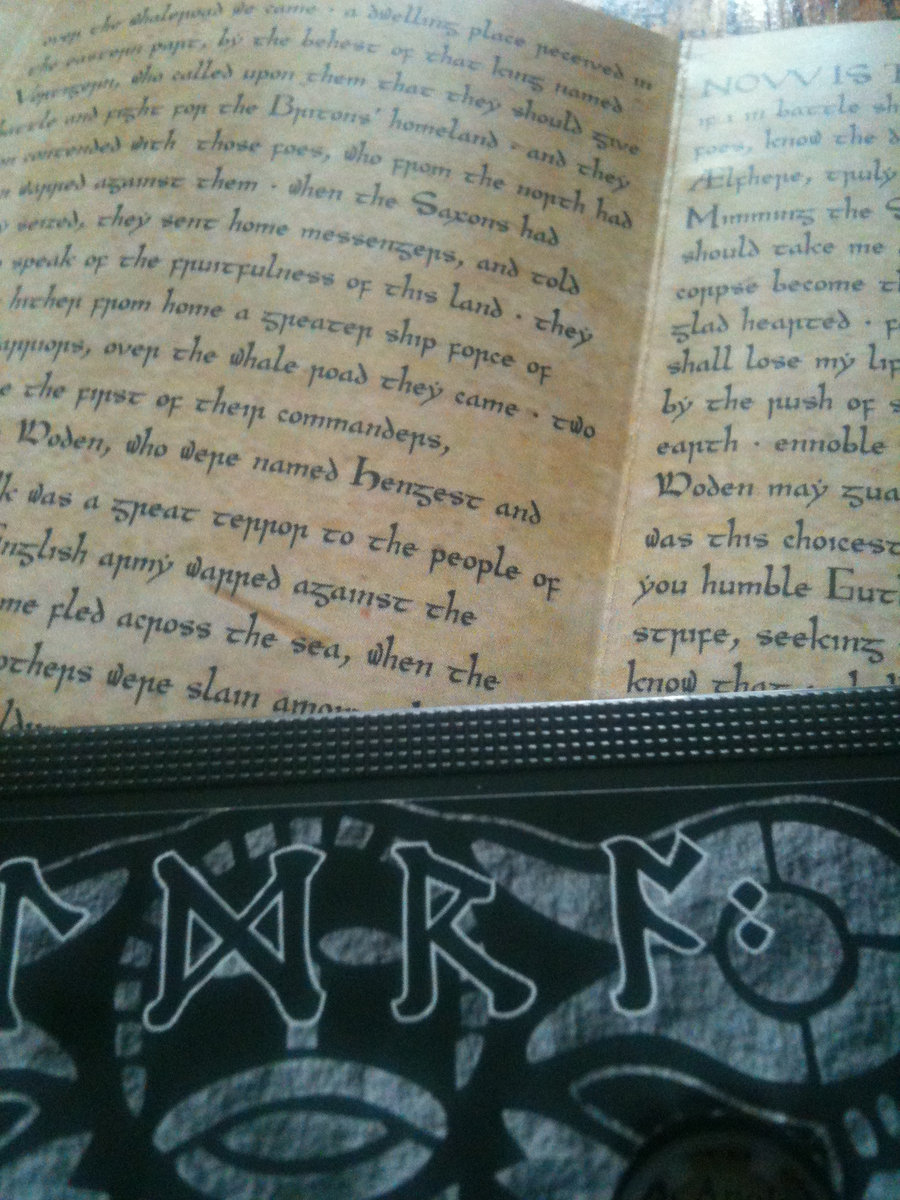 over the whaleroad we came · a dwelling place received in
the eastern part, by the behest of that king named
Vortigern, who called upon them that they should give
battle and fight for the Britons' homeland · and they
contended with those foes, who from the north had
warred against them · when the Saxons had
seized, they sent home messengers, and told
speak of the fruitfulness of this land · they
hither from home a greater ship force of
over the whale road they came · two
the first of their commanders,
Woden, who were named Hengest and
was a great terror to the people of
English army warred against the
fled across the sea, when the
others were slain
NOW IS
in battle
foes, know the
Ælfhere, truly
Mimming the
should take me
corpse become
glad hearted ·
shall lose my
by the rush of
earth · ennoble
Woden may
was this choicest
you humble
strife, seeking
know that ·
ᛚᛞᚱᚩ: